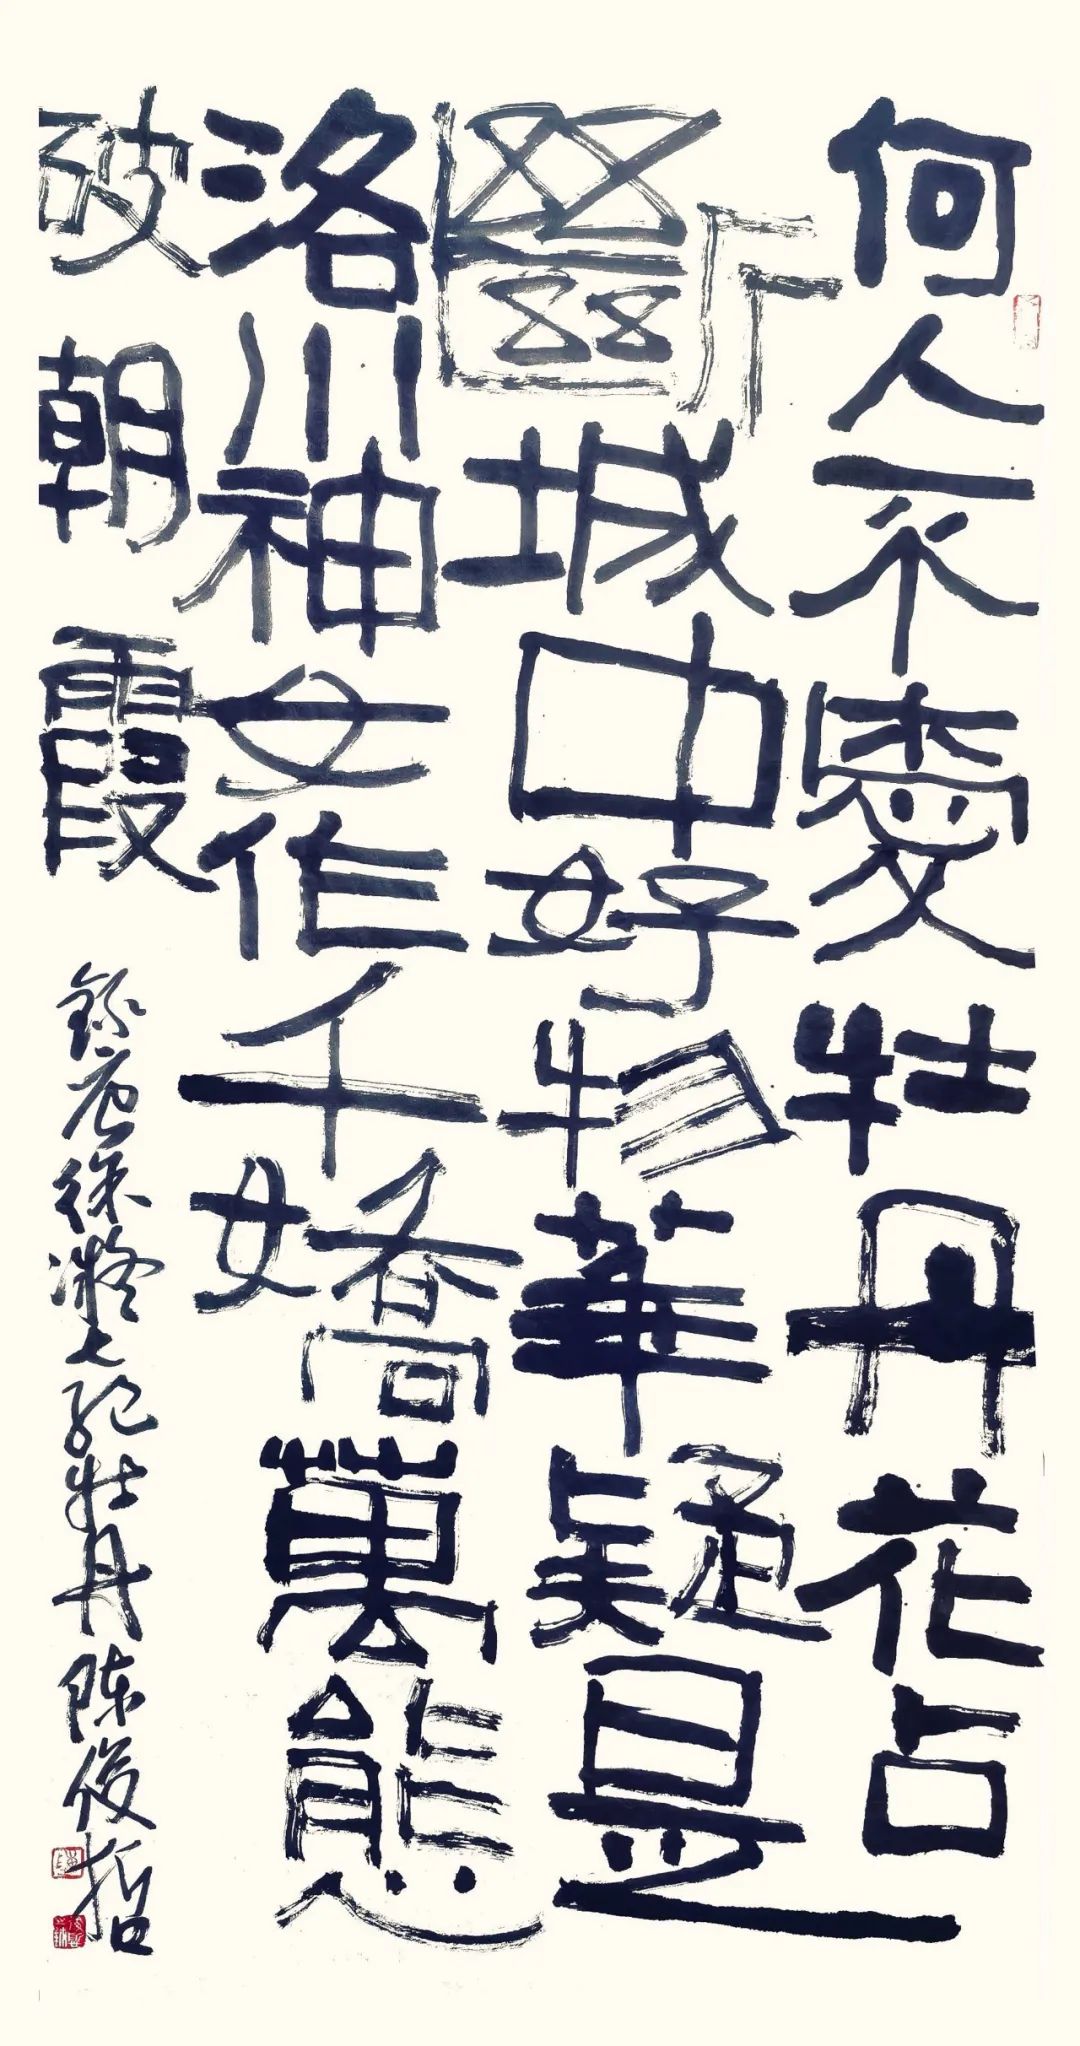 何人不愛牡丹花占
斷城中好物華疑是
洛川神女作千嬌萬態
破朝霞
錄唐徐凝七絕牡丹陈俊哲